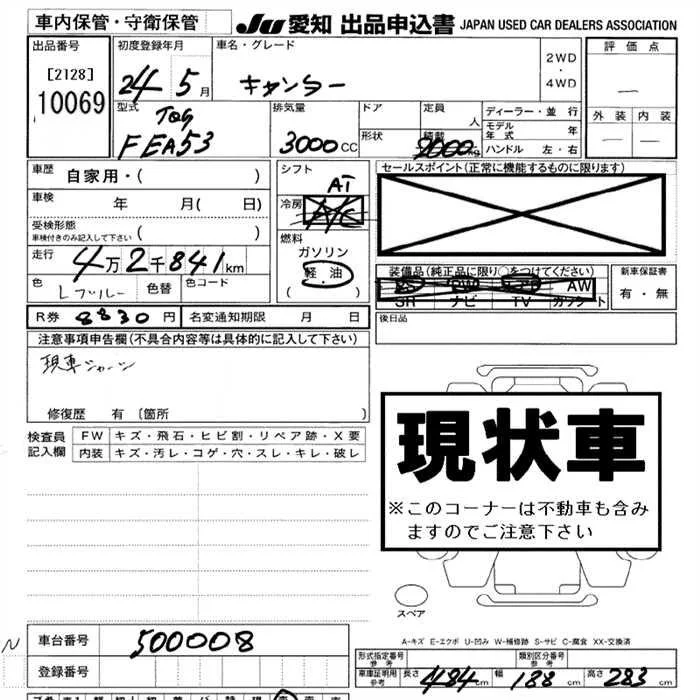 車内保管・守衛保管
JU 愛知 出品申込書 JAPAN USED CAR DEALERS ASSOCIATION
出品番号
[2128]
10069
初度登録年月
24年5月
車名・グレード
キャンター
2WD
・
4WD
評価点
—
外装 内装
— —
型式
TQG
FEA53
排気量
3000CC
ドア
形状
定員
人
積載
2000kg
ディーラー・並行
モデル年式 年
ハンドル 左・右
車歴 自家用・( )
車検 年 月( 日)
受検形態
車検付きのみ記入して下さい ( )
走行 4万2千841km
色 Lブルー 色替 色コード
シフト
AT
冷房
A/C
燃料
ガソリン
軽・油
( )
セールスポイント(正常に機能するものに限ります)
装備品(純正品に限り○をつけてください)
PS PW エアB AW
SR ナビ TV カセット
新車保証書
有・無
R券 8830円 名変通知期限 月 日
後日品
注意事項申告欄(不具合内容等は具体的に記入して下さい)
現車
修復歴 有 〔箇所
検査員
記入欄
FW キズ・飛石・ヒビ割・リペア跡・X要
内装 キズ・汚レ・コゲ・穴・スレ・キレ・破レ
現状車
※このコーナーは不動車も含み
ますのでご注意下さい
スペア
A-キズ E-エクボ U-凹み W-補修跡 S-サビ C-腐食 XX-交換済
N
車台番号 500008
登録番号
形式指定番号
参考
類別区分番号
参考
車庫証明用
参考
長さ 484cm 幅 188cm 高さ 283cm